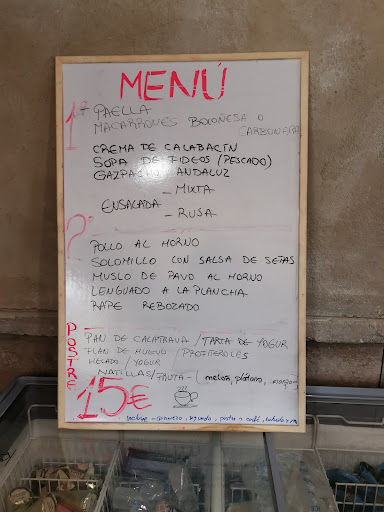 MENÚ
1º - PAELLA
MACARRONES BOLOÑESA O
CARBONARA
CREMA DE CALABACÍN
SOPA DE FIDEOS (PESCADO)
GAZPACHO ANDALUZ
ENSALADA - MIXTA
- RUSA
2º
POLLO AL HORNO
SOLOMILLO CON SALSA DE SETAS
MUSLO DE PAVO AL HORNO
LENGUADO A LA PLANCHA
RAPE REBOZADO
POSTRE
PAN DE CALATRAVA / TARTA DE YOGUR
FLAN DE HUEVO / PROFITEROLES
HELADO / YOGUR
NATILLAS / FRUTA - ( melón, plátano,
15€
incluye - primero, segundo, postre o café,